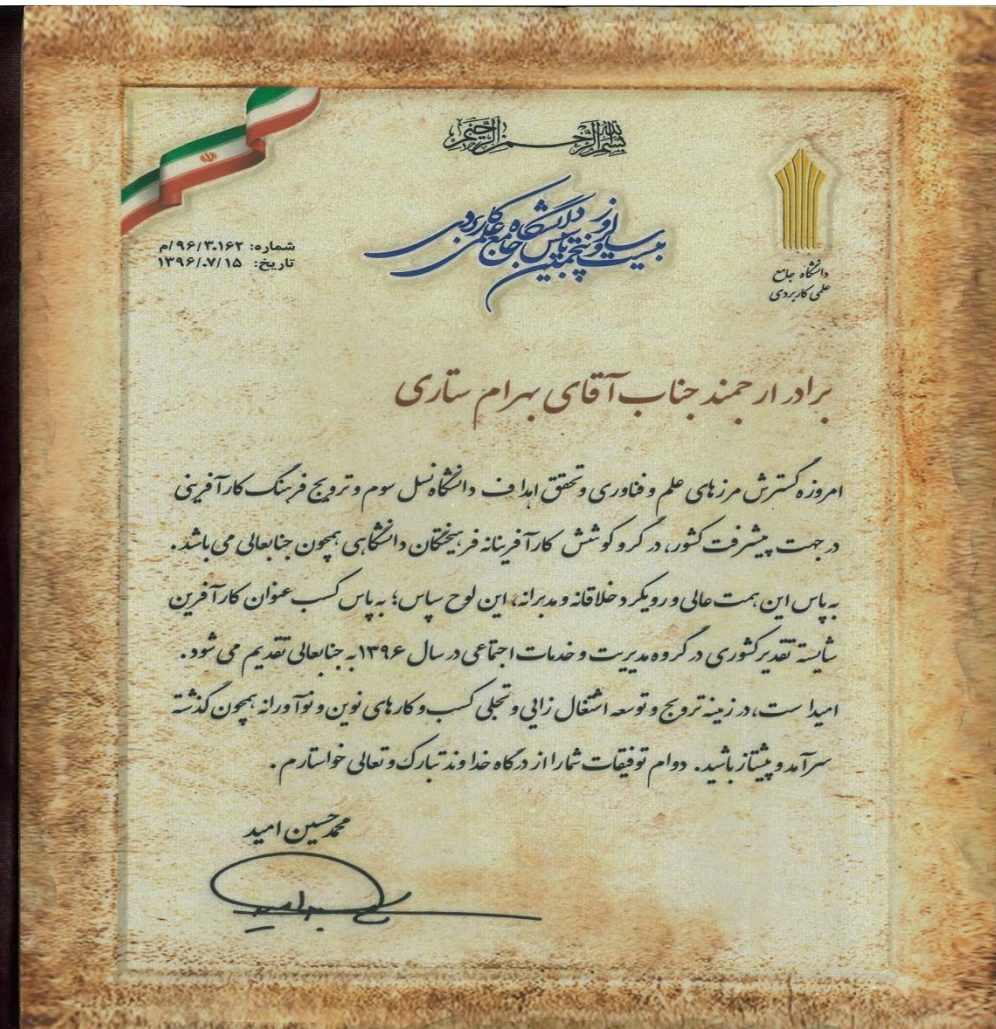 بسم الله الرحمن الرحیم
بیست و پنجمین سالروز تاسیس دانشگاه جامع علمی کاربردی
دانشگاه جامع
علمی کاربردی
شماره: ۹۶/۳۰۱۶۲/م
تاریخ: ۱۳۹۶/۰۷/۱۵
برادر ارجمند جناب آقای بهرام ستاری
امروزه گسترش مرزهای علم و فناوری و تحقق اهداف دانشگاه نسل سوم و ترویج فرهنگ کارآفرینی
در جهت پیشرفت کشور، در گرو کوشش کارآفرینانه فرهیختگان دانشگاهی همچون جنابعالی می باشد.
به پاس این همت عالی و رویکرد خلاقانه و مدبرانه، این لوح سپاس؛ به پاس کسب عنوان کارآفرین
شایسته تقدیر کشوری در گروه مدیریت و خدمات اجتماعی در سال ۱۳۹۶ به جنابعالی تقدیم می شود.
امید است، در زمینه ترویج و توسعه اشتغال زایی و تجلی کسب و کارهای نوین و نوآورانه همچون گذشته
سرآمد و پیشتاز باشید. دوام توفیقات شما را از درگاه خداوند تبارک و تعالی خواستارم.
محمدحسین امید